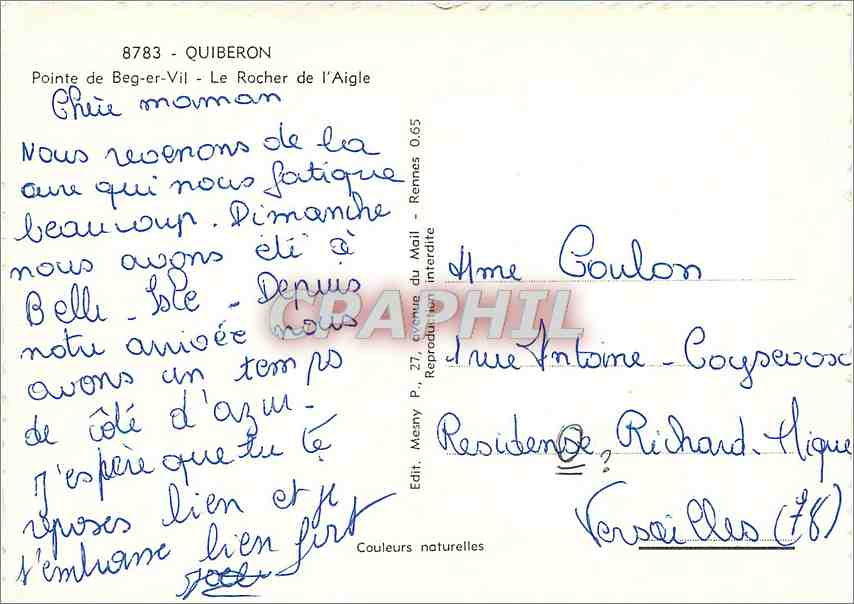 8783 - QUIBERON
Pointe de Beg-er-Vil - Le Rocher de l'Aigle
Chère maman
Nous revenons de la
cure qui nous fatigue
beaucoup. Dimanche
nous avons été à
Belle-Isle - Depuis
notre arrivée nous
avons un temps
de côté d'azur -
J'espère que tu té
reposes bien et je
t'embrasse bien fort
Couleurs naturelles
Edit. Mesny P., 27, avenue du Mail - Rennes 0.65
Reproduction interdite
Mme Coulon
1 rue Antoine - Coysevox
Residence ? Richard-Mique
Versailles (78)
CRAPHIL